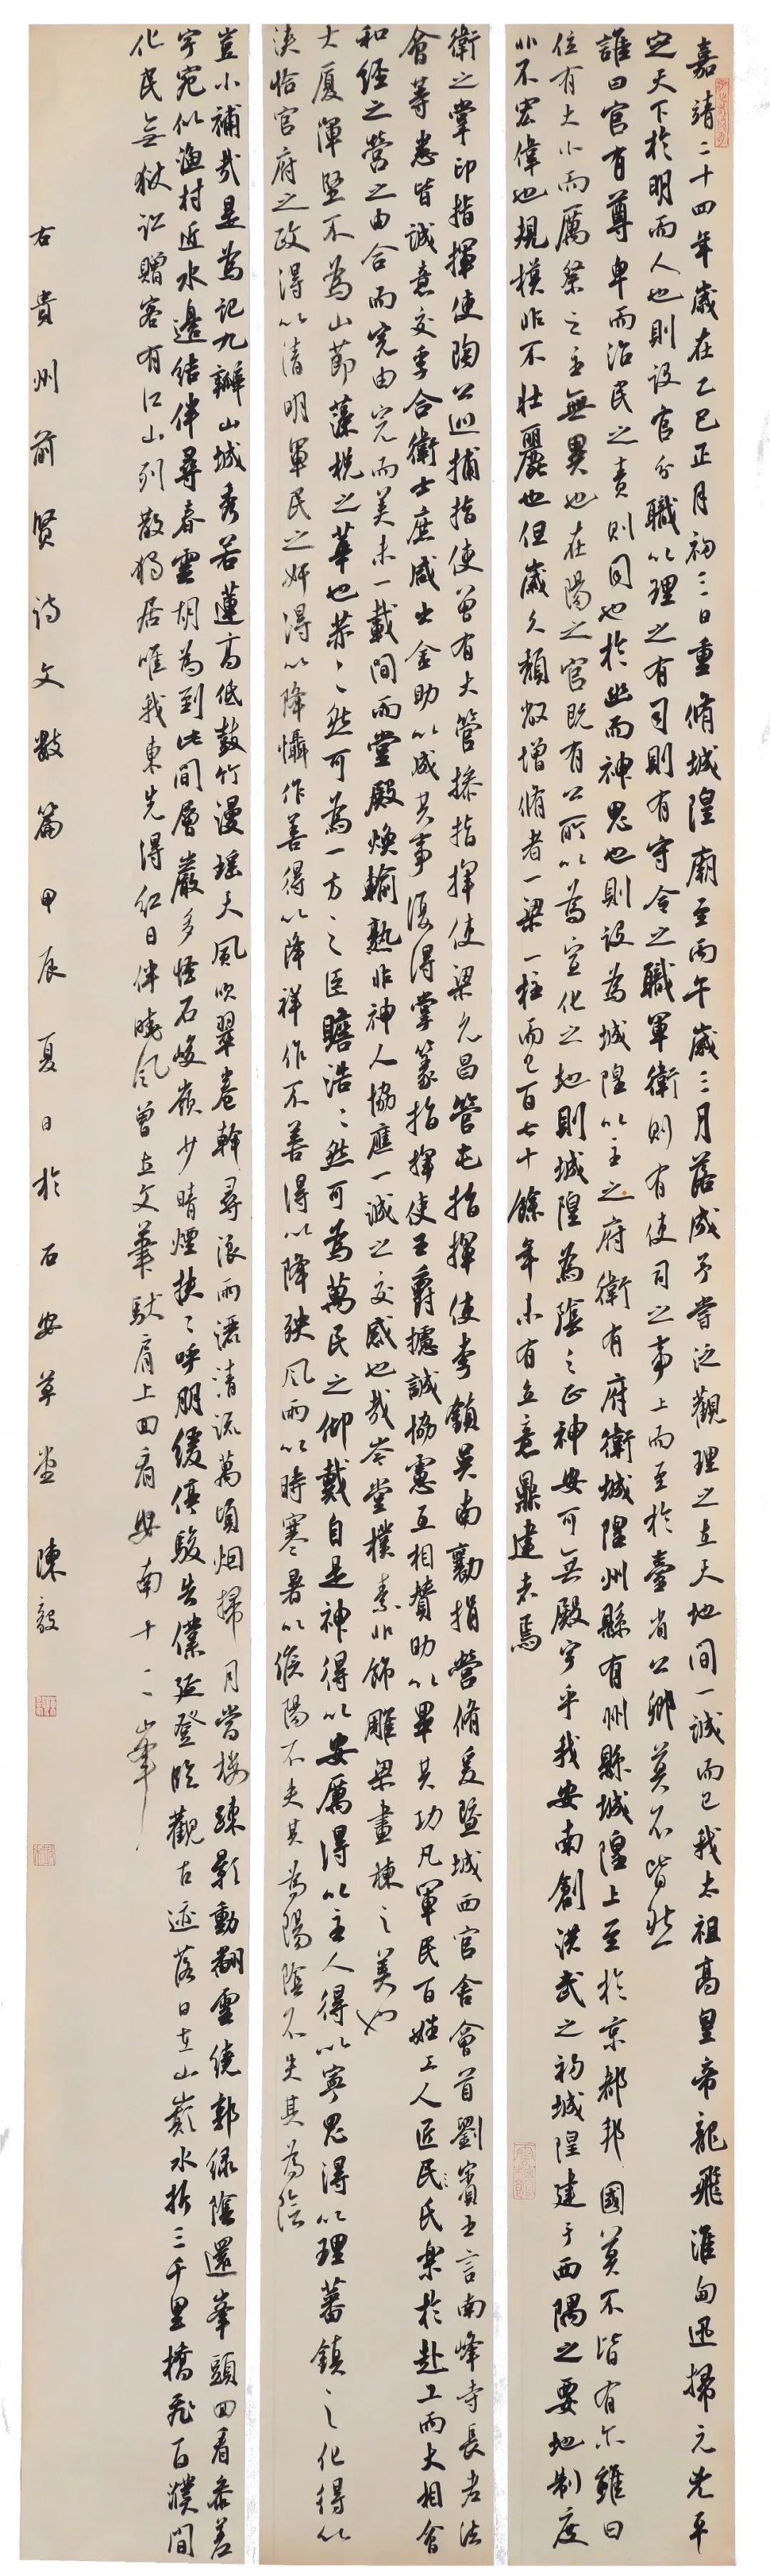 嘉靖二十四年歲在乙巳正月初三日重脩城隍廟至丙午歲三月落成予嘗泛觀理之在天地間一誠而已我太祖高皇帝龍飛淮甸迅掃元兇平
定天下於明而人也則設官分職以理之有司則有守令之職軍衛則有使司之事上而至於臺省公卿莫不皆然
誰曰官有尊卑而治民之責則同也於幽而神鬼也則設為城隍以主之府衛有府衛城隍州縣有州縣城隍上至於京都邦國莫不皆有亦雖曰
位有大小而厲祭之主無異也在陽之官既有公所以為宣化之地則城隍為陰之正神安可無殿宇乎我安南創洪武之初城隍建于西隅之要地制度
非不宏偉也規模非不壯麗也但歲久頹敝增脩者一梁一柱而已百七十餘年未有立意鼎建者焉
衛之掌印指揮使陶公巡捕指使曾有大管操指揮使梁允昌管屯指揮使李鎮吳南勸捐營脩爰暨城西官舍會首劉賓王言南峰寺長老法
會等悉皆誠意交孚合衛士庶咸出金助以成其事復得掌篆指揮使王爵攄誠協憲互相贊助以畢其功凡軍民百姓工人匠民氏樂於赴工而大相會
和經之營之由合而完由完而美未一載間而堂殿煥輪孰非神人協應一誠之交感也哉峇堂樸素非飾雕梁畫棟之美也
大廈渾堅不為山節藻梲之華也恭恭然可為一方之臣瞻浩浩然可為萬民之仰戴自是神得以安厲得以主人得以寧鬼得以理蕃鎮之化得以
浹恰官府之政得以清明軍民之奸得以降懾作善得以降祥作不善得以降殃風雨以時寒暑以候陽不失其為陽陰不失其為陰
豈小補哉是為記九瓣山城秀若蓮高低鼓竹漫瑤天風吹翠卷幹尋浪雨濯清流萬頃烟掃月當樓疎影動翻雲繞郭綠陰還峯頭回看參差
字宛似漁村近水邊結伴尋春雲胡為到此間層巖多怪石峻嶺少晴煙挾挾呼朋緩停驂告僕延登臨觀古迹落日在山巔水折三千里橋飛百濮間
化民無獄訟贈客有江山列散獨居唯我東先得紅日伴曉風曾立文華馱肩上回看安南十二峯
右貴州前賢詩文數篇甲辰夏日於石安草堂陳毅